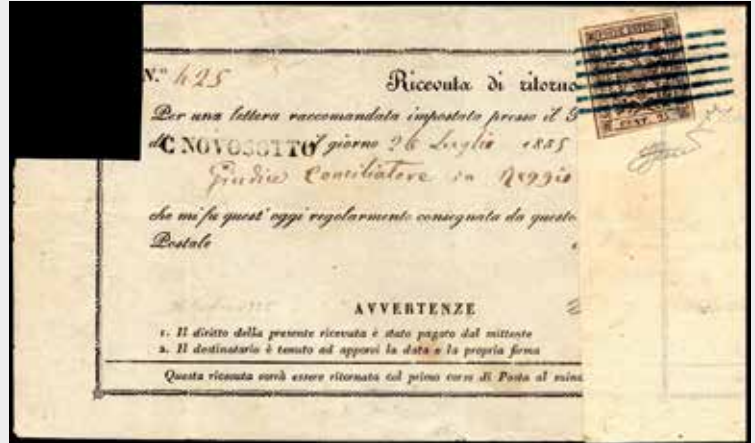 N.º 425
Ricevuta di ritorno
Per una lettera raccomandata impostata presso il
C NOVOSOTTO il giorno 26 Luglio 1855
Giudice Conciliatore in Reggio
che mi fu quest' oggi regolarmente consegnata da questo
Postale
AVVERTENZE
1. Il diritto della presente ricevuta è stato pagato dal mittente
2. Il destinatario è tenuto ad apporvi la data e la propria firma
Questa ricevuta verrà essere ritornata col primo corso di Posta al
POSTE ESTENSI
CENT. 25